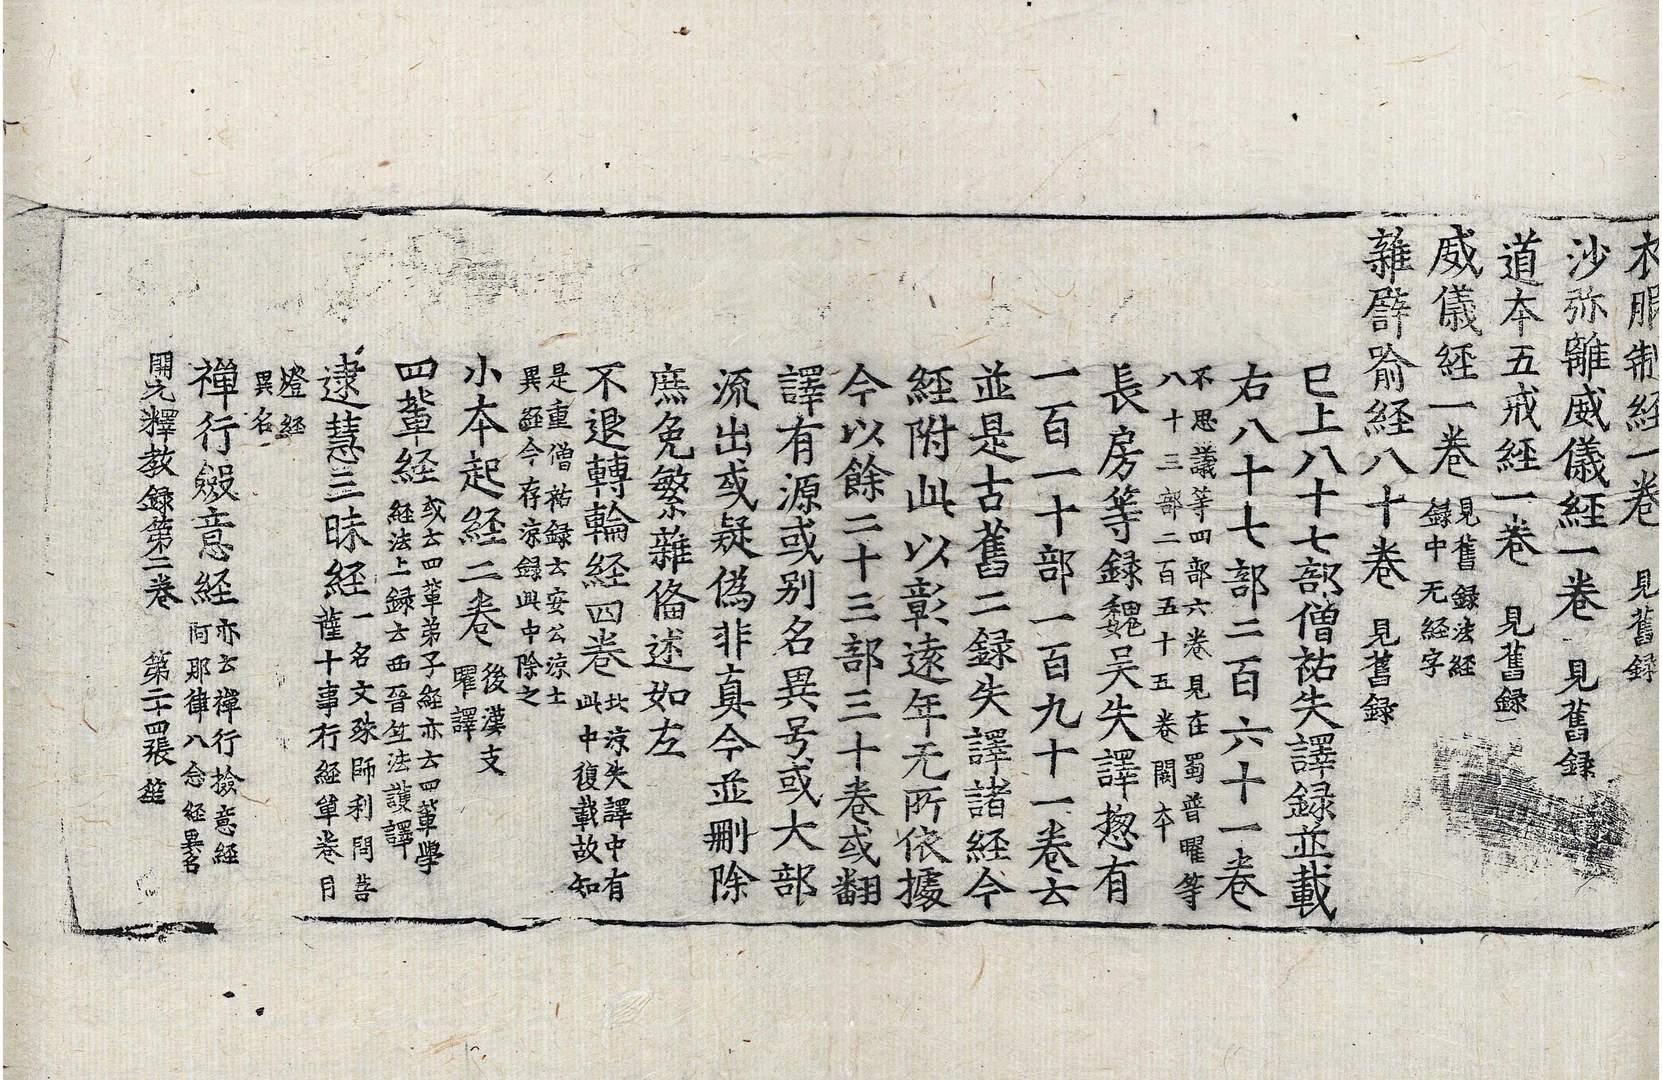 衣服制経一卷　見舊録
沙弥離威儀経一卷　見舊録
道本五戒経一卷　見舊録
威儀経一卷　見舊録法経
録中无経字
雜譬喻経八十卷　見舊録
巳上八十七部僧祐失譯録並載
右八十七部二百六十一卷
不思議等四部六卷見在蜀普曜等
八十三部二百五十五卷闕本
長房等録魏吴失譯揔有
一百一十部一百九十一卷云
並是古舊二録失譯諸経今
経附此以彰遠年无所依據
今以餘二十三部三十卷或翻
譯有源或别名異号或大部
流出或疑偽非真今並刪除
庶免繁雜俻述如左
不退轉輪経四卷　北涼失譯中有
此中復載故知
是重僧祐録云安公涼土
異経今存涼録此中除之
小本起経二卷　後漢支
曜譯
四軰経　或云四軰弟子経亦云四軰學
経法上録云西晉竺法護譯
逮慧三昧経　一名文殊師利問菩
薩十事行経單卷月
燈経
異名
禪行斂意経　亦云禪行撿意経
阿那律八念経異名
開元釋教録第二卷　第二十四張　笙